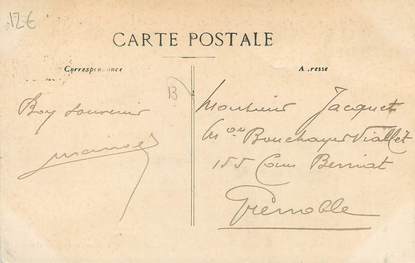 12€
CARTE POSTALE
Correspondance
Adresse
B
Boy souvenir
Monsieur Jacquet
Mon Bouchayer Viallet
155 Cours Berriat
Grenoble